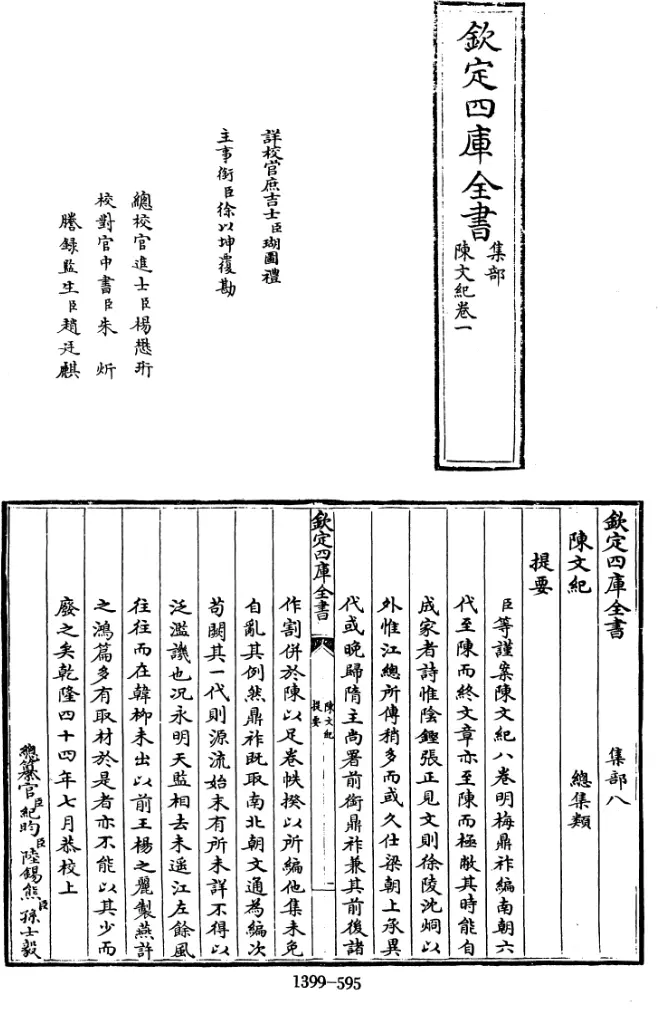 欽定四庫全書
集部
陳文紀卷一
詳校官庶吉士臣瑚圖禮
主事銜臣徐以坤覆勘
總校官進士臣楊懋珩
校對官中書臣朱炘
謄錄監生臣趙廷麒
欽定四庫全書 集部八
陳文紀 總集類
提要
臣等謹案陳文紀八卷明梅鼎祚編南朝六
代至陳而終文章亦至陳而極敝其時能自
成家者詩惟陰鏗張正見文則徐陵沈烱以
外惟江總所傳稍多而或久仕梁朝上承異
代或晚歸隋主尚署前銜鼎祚兼其前後諸
欽定四庫全書
陳文紀
提要
一
作割併於陳以足卷帙揆以所編他集未免
自亂其例然鼎祚既取南北朝文通為編次
苟闕其一代則源流始末有所未詳不得以
泛濫譏也况永明天監相去未遥江左餘風
往往而在韓柳未出以前王楊之麗製燕許
之鴻篇多有取材於是者亦不能以其少而
廢之矣乾隆四十四年七月恭校上
總纂官臣紀昀臣陸錫熊臣孫士毅
1399-595